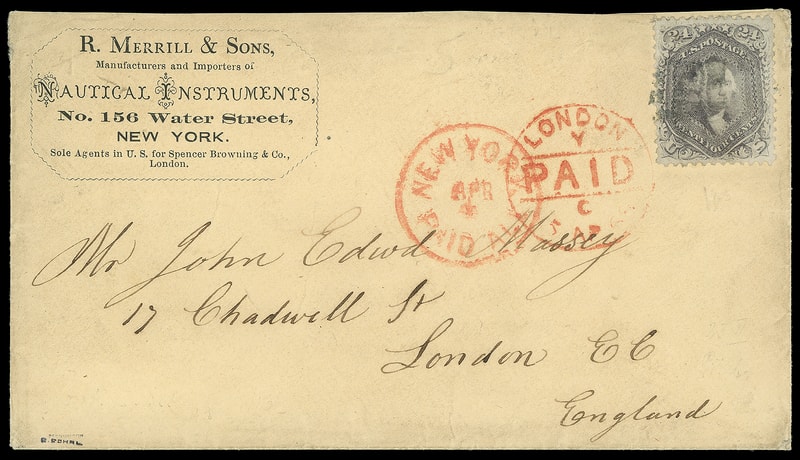 R. MERRILL & SONS,
Manufacturers and Importers of
NAUTICAL INSTRUMENTS,
No. 156 Water Street,
NEW YORK.
Sole Agents in U. S. for Spencer Browning & Co.,
London.
24 24
U.S. POSTAGE
NEW YORK
APR
PAID ALL
LONDON
Y
PAID
C
5 AP
Mr John Edwd Massey
17 Chadwell St
London E C
England